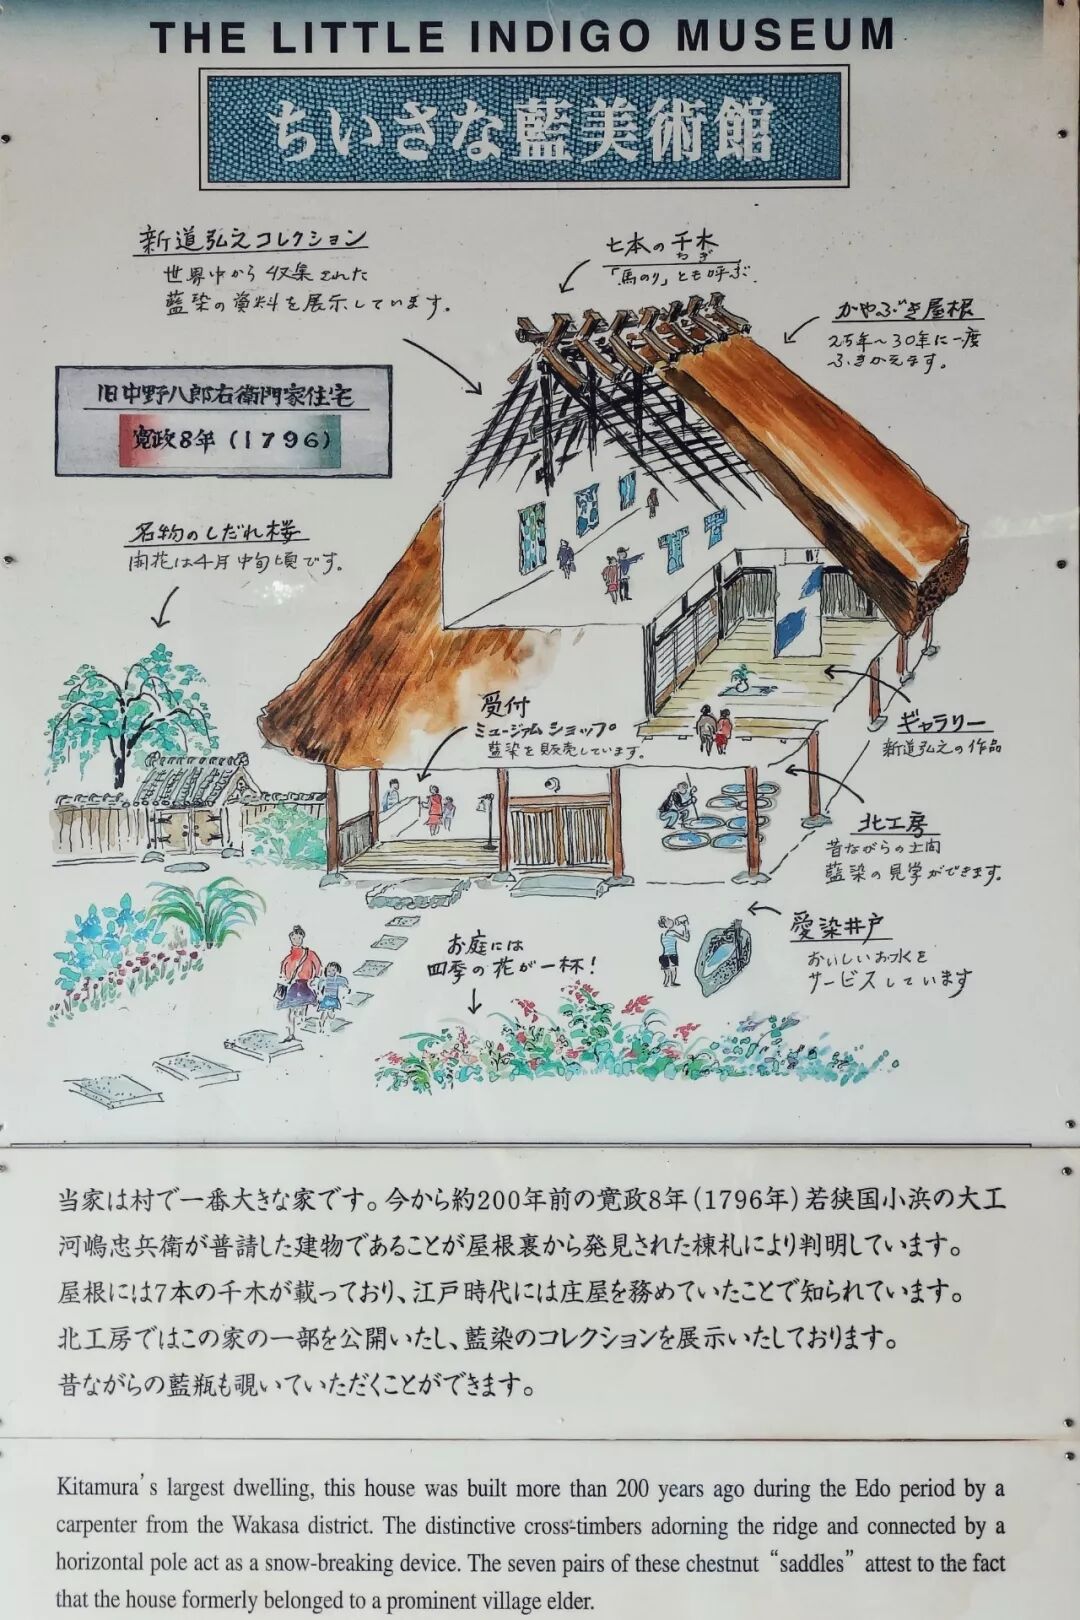 THE LITTLE INDIGO MUSEUM
ちいさな藍美術館
新道弘之コレクション
世界中から収集された
藍染の資料を展示しています。
七本の千木
ちぎ
「馬のり」とも呼ぶ。
かやぶき屋根
25年〜30年に一度
ふきかえます。
旧中野八郎右衛門家住宅
寛政8年(1796)
名物のしだれ桜
開花は4月中旬頃です。
受付
ミュージアムショップ
藍染を販売しています。
ギャラリー
新道弘之の作品
北工房
昔ながらの土間
藍染の見学ができます。
愛染井戸
おいしいお水を
サービスしています
お庭には
四季の花が一杯!
当家は村で一番大きな家です。今から約200年前の寛政8年(1796年)若狭国小浜の大工
河嶋忠兵衛が普請した建物であることが屋根裏から発見された棟札により判明しています。
屋根には7本の千木が載っており、江戸時代には庄屋を務めていたことで知られています。
北工房ではこの家の一部を公開いたし、藍染のコレクションを展示いたしております。
昔ながらの藍瓶も覗いていただくことができます。
Kitamura's largest dwelling, this house was built more than 200 years ago during the Edo period by a
carpenter from the Wakasa district. The distinctive cross-timbers adorning the ridge and connected by a
horizontal pole act as a snow-breaking device. The seven pairs of these chestnut “saddles” attest to the fact
that the house formerly belonged to a prominent village elder.